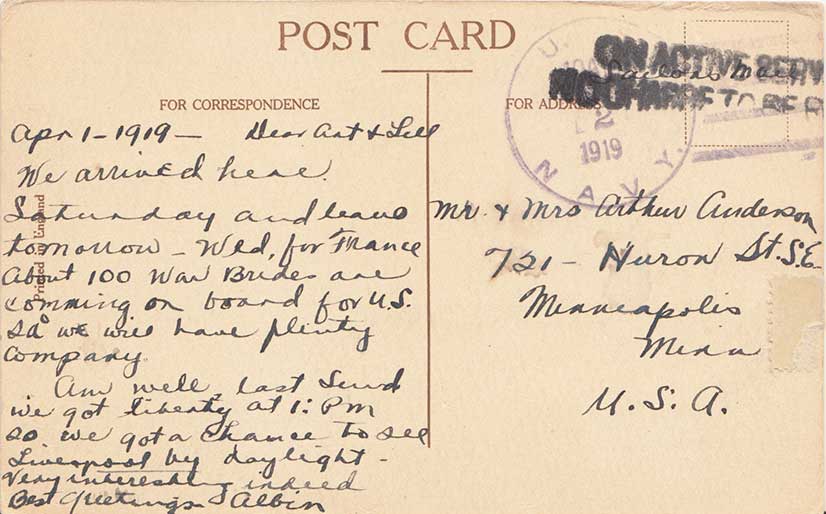 POST CARD
FOR CORRESPONDENCE
Apr 1-1919- Dear Art & Lill
We arrived here.
Saturday and leave
tomorrow - Wed, for France
About 100 War Brides are
comming on board for U.S.
so we will have plenty
company.
Am well, last Sund
we got liberty at 1: PM
so we got a chance to see
Liverpool by daylight -
Very interesting indeed
Best Greetings Albin
Printed in England
FOR ADDRESS
Sailors Mail
ON ACTIVE SERV
NO CHARGE TO BE R
U.
2
1919
NAVY.
Mr. & Mrs Arthur Anderson
721- Huron St. S.E.
Minneapolis
Minn
U. S. A.